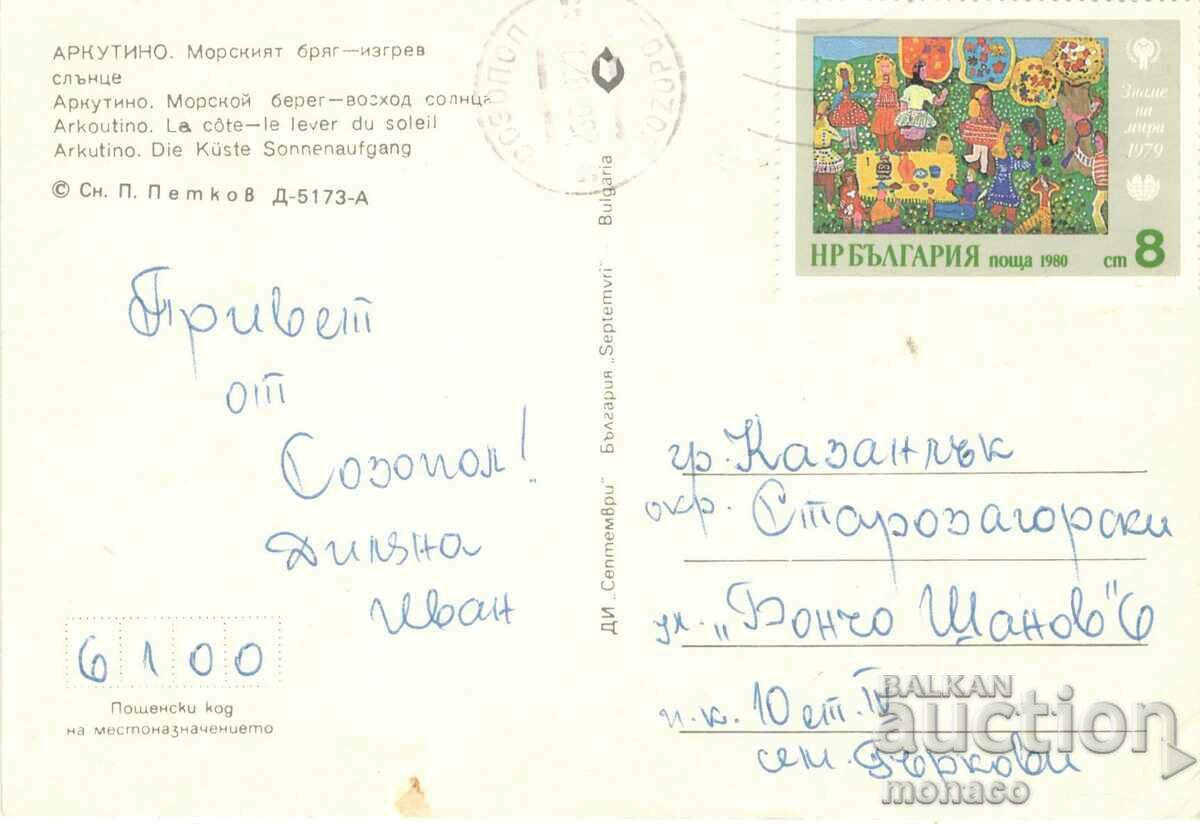 АРКУТИНО. Морският бряг—изгрев
слънце
Аркутино. Морской берег—восход солнца
Arkoutino. La côte—le lever du soleil
Arkutino. Die Küste Sonnenaufgang
© Сн. П. Петков Д-5173-А
Привет
от
Созопол!
Диляна
Иван
6100
Пощенски код
на местоназначението
ДИ „Септември" България „Septemvri" Bulgaria
СОЗОПОЛ
Знаме
на
мира
1979
НР БЪЛГАРИЯ поща 1980 ст 8
гр. Казанлък
окр. Старозагорски
ул. „Бончо Шанов" 6
п.к. 10 ет. IV
сем. Гъркови
BALKAN
auction
monaco